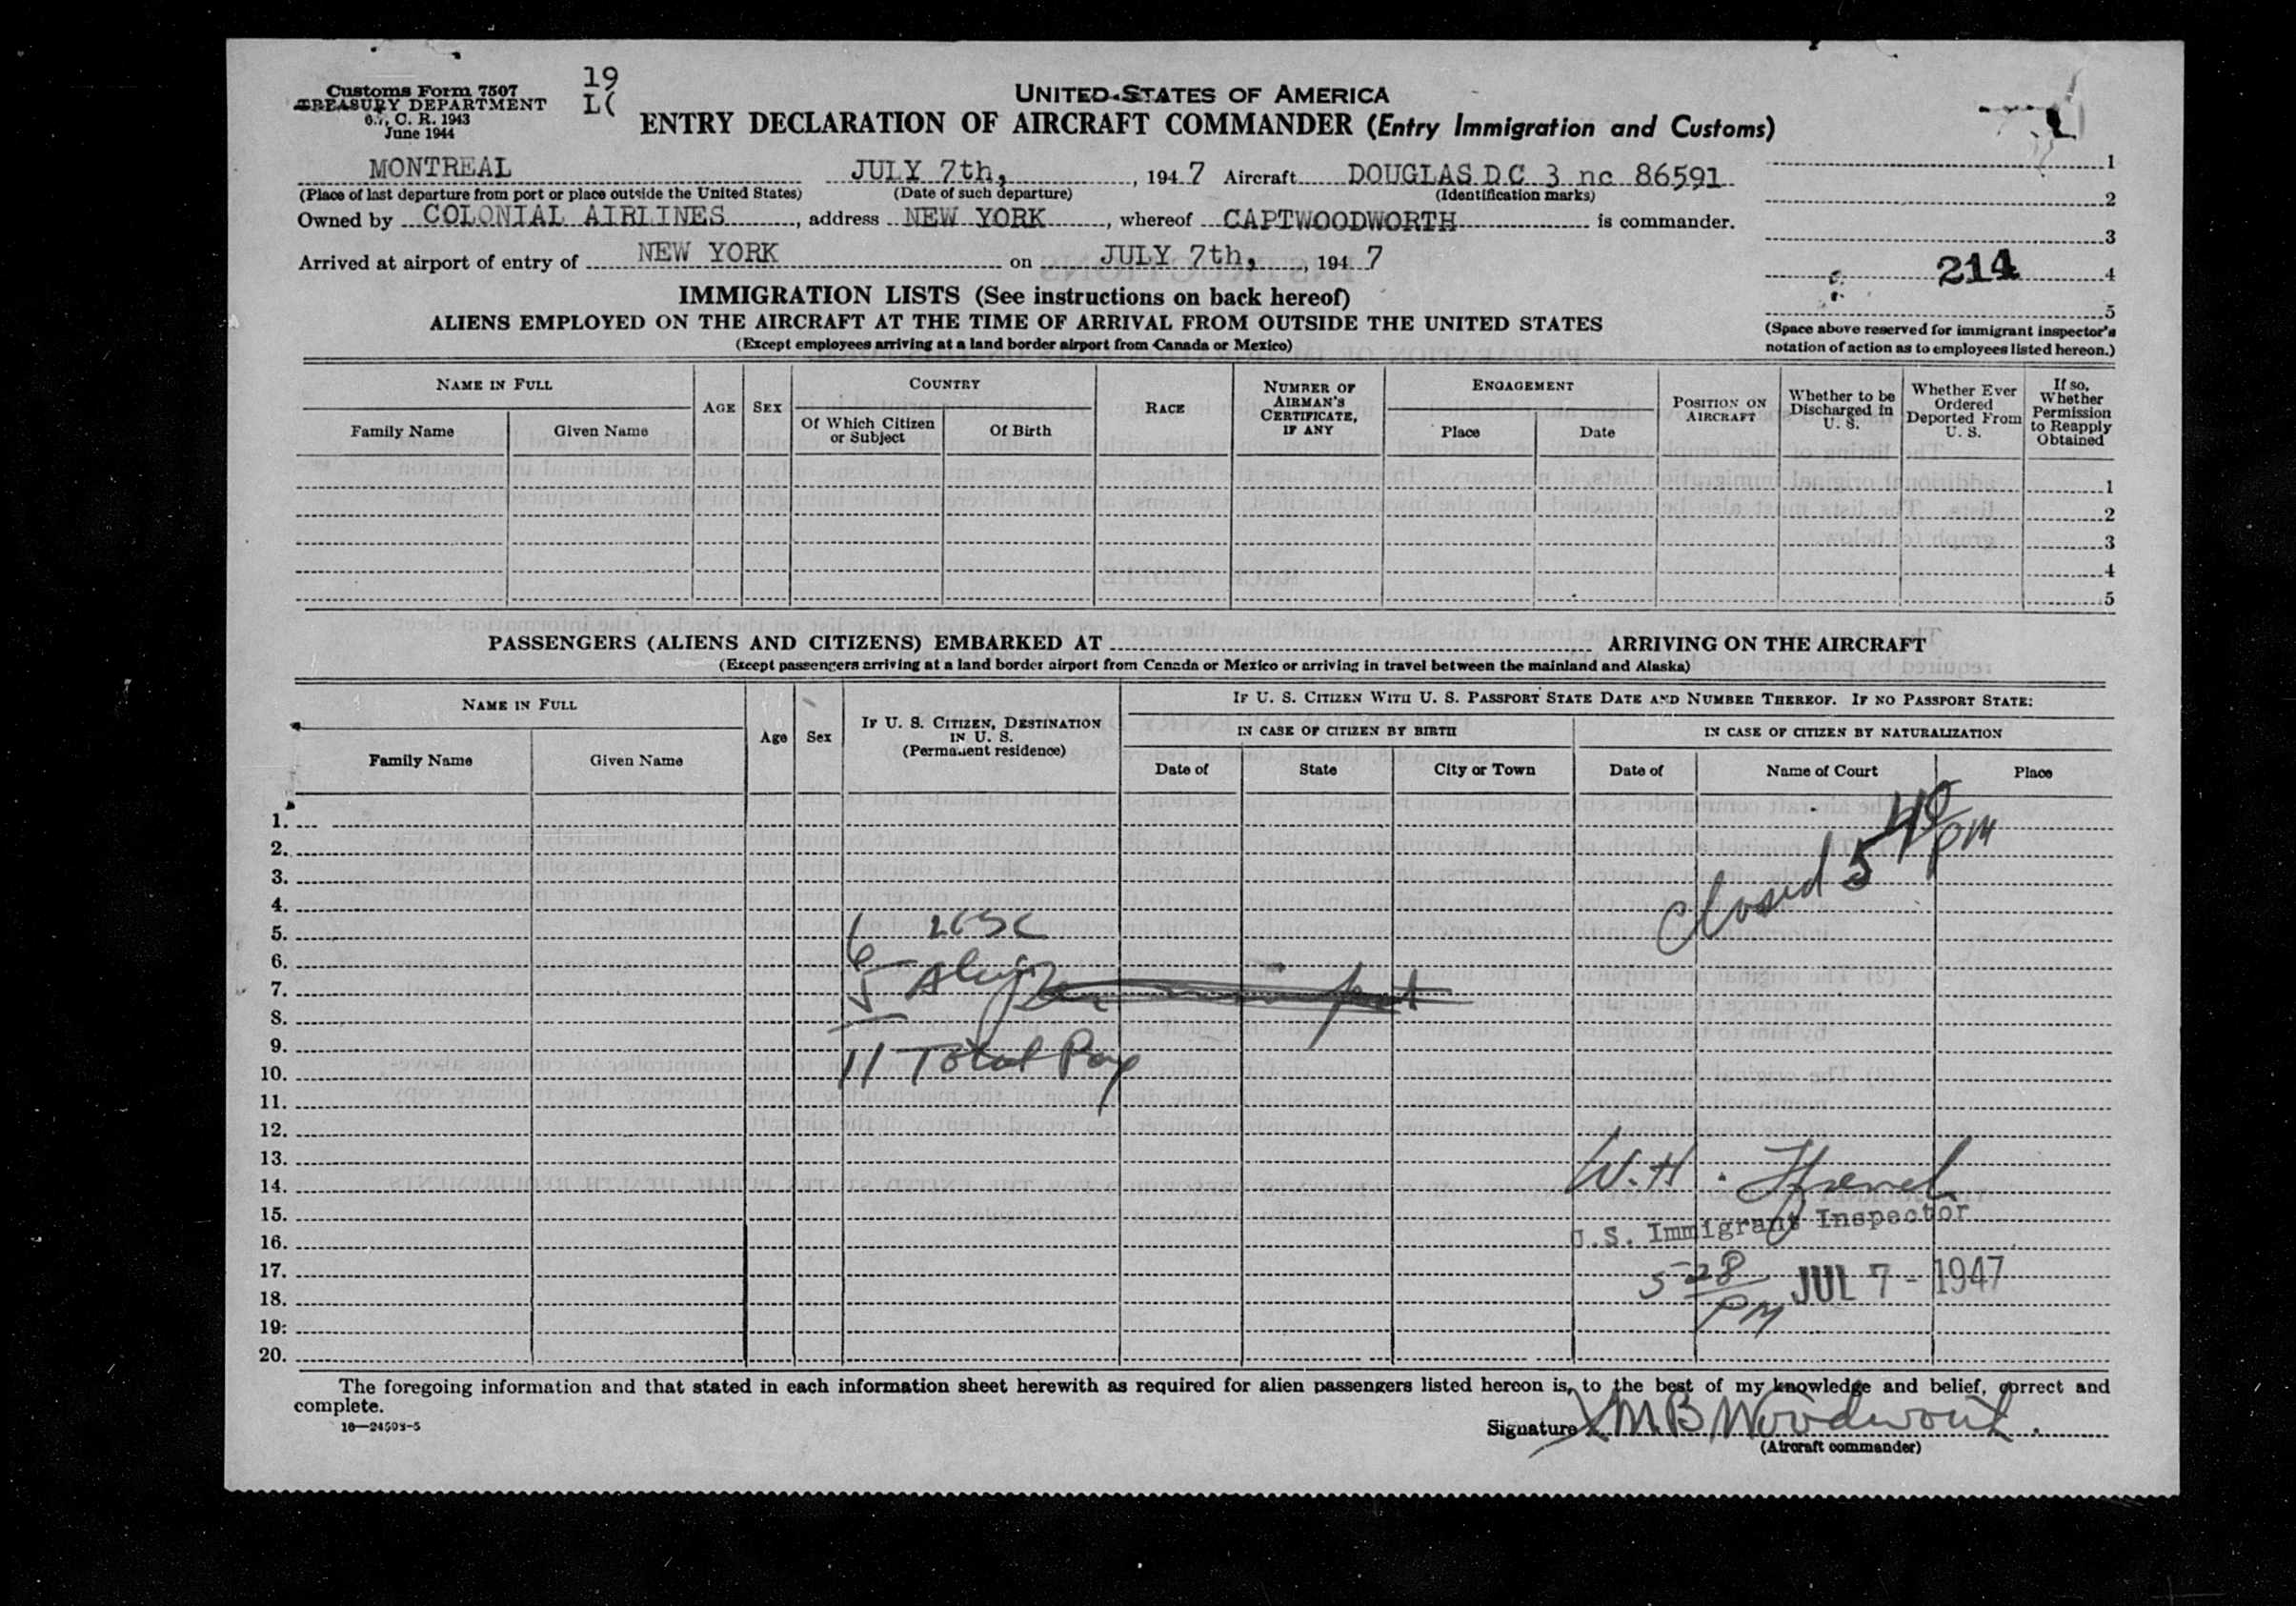 Customs Form 7507
TREASURY DEPARTMENT
C. R. 1943
June 1944
19
L(
UNITED STATES OF AMERICA
ENTRY DECLARATION OF AIRCRAFT COMMANDER (Entry Immigration and Customs)
MONTREAL JULY 7th, , 194 7 Aircraft DOUGLAS D C 3 nc 86591
(Place of last departure from port or place outside the United States) (Date of such departure) (Identification marks)
Owned by COLONIAL AIRLINES , address NEW YORK , whereof CAPTWOODWORTH is commander.
Arrived at airport of entry of NEW YORK on JULY 7th, , 194 7
1
2
3
214 4
5
(Space above reserved for immigrant inspector's
notation of action as to employees listed hereon.)
IMMIGRATION LISTS (See instructions on back hereof)
ALIENS EMPLOYED ON THE AIRCRAFT AT THE TIME OF ARRIVAL FROM OUTSIDE THE UNITED STATES
(Except employees arriving at a land border airport from Canada or Mexico)
NAME IN FULL
Family Name Given Name
AGE
SEX
COUNTRY
Of Which Citizen
or Subject
Of Birth
RACE
NUMBER OF
AIRMAN'S
CERTIFICATE,
IF ANY
ENGAGEMENT
Place Date
POSITION ON
AIRCRAFT
Whether to be
Discharged in
U. S.
Whether Ever
Ordered
Deported From
U. S.
If so,
Whether
Permission
to Reapply
Obtained
1
2
3
4
5
PASSENGERS (ALIENS AND CITIZENS) EMBARKED AT ARRIVING ON THE AIRCRAFT
(Except passengers arriving at a land border airport from Canada or Mexico or arriving in travel between the mainland and Alaska)
NAME IN FULL
Family Name Given Name
Age
Sex
IF U. S. CITIZEN, DESTINATION
IN U. S.
(Permanent residence)
IF U. S. CITIZEN WITH U. S. PASSPORT STATE DATE AND NUMBER THEREOF. IF NO PASSPORT STATE:
IN CASE OF CITIZEN BY BIRTH
Date of State City or Town
IN CASE OF CITIZEN BY NATURALIZATION
Date of Name of Court Place
1.
2.
3.
4.
5.
6.
7.
8.
9.
10.
11.
12.
13.
14.
15.
16.
17.
18.
19.
20.
Closed 5 40 PM
6 USC
5
11 Total
W. H.
U.S. Immigrant Inspector
5 28 PM JUL 7 - 1947
The foregoing information and that stated in each information sheet herewith as required for alien passengers listed hereon is, to the best of my knowledge and belief, correct and
complete.
16—24598-5
Signature X M B Woodworth.
(Aircraft commander)